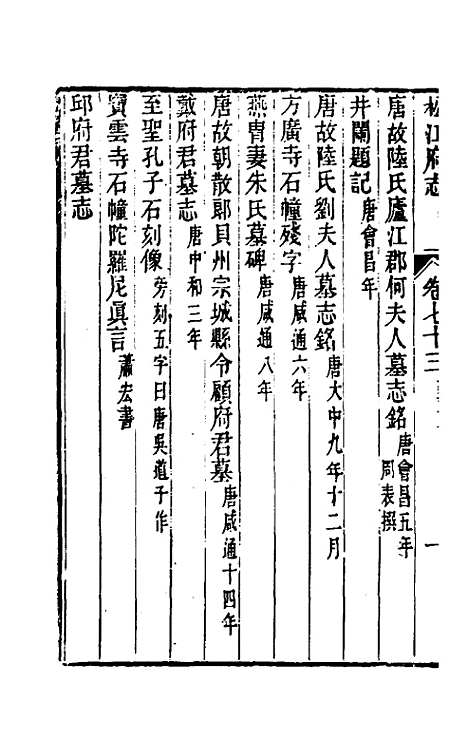 松江府志 卷七十三 一
唐故陸氏廬江郡何夫人墓志銘 唐會昌五年 周表撰
井闌題記 唐會昌年
唐故陸氏劉夫人墓志銘 唐大中九年十二月
方廣寺石幢殘字 唐咸通六年
燕胄妻朱氏墓碑 唐咸通八年
唐故朝散郎貝州宗城縣令顧府君墓 唐咸通十四年
戴府君墓志 唐中和三年
至聖孔子石刻像 旁刻五字曰唐吳道子作
寶雲寺石幢陀羅尼眞言 蕭宏書
邱府君墓志